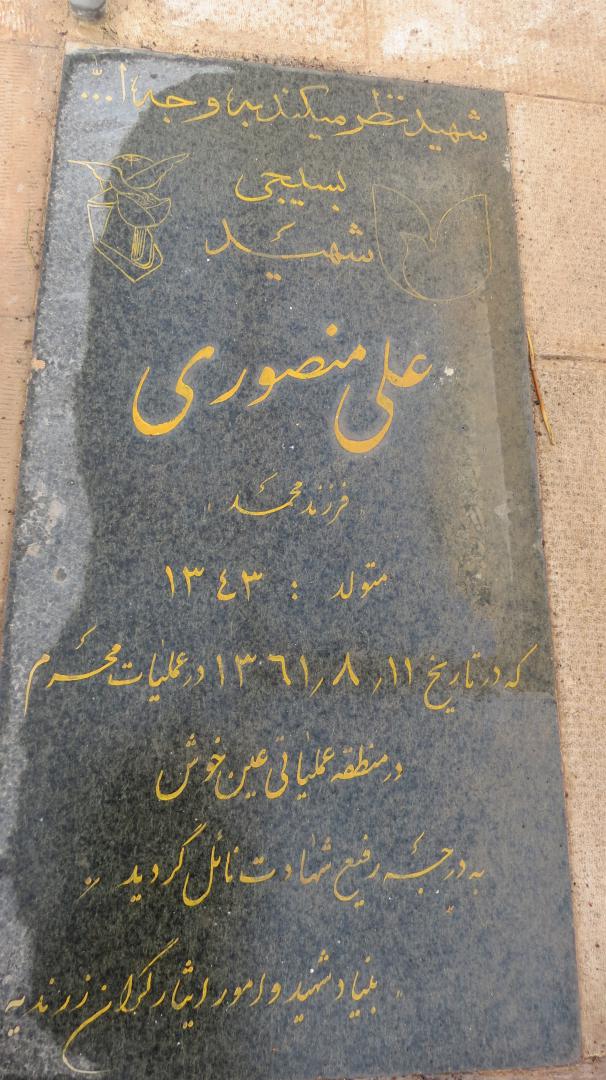 شهید نظر میکند به وجه ا...
بسیجی
شهید
علی منصوری
فرزند محمد
متولد : ۱۳۴۳
که در تاریخ ۱۱/۸/۱۳۶۱ در عملیات محرم
در منطقه عملیاتی عین خوش
به درجه رفیع شهادت نائل گردید
بنیاد شهید و امور ایثارگران زرندیه